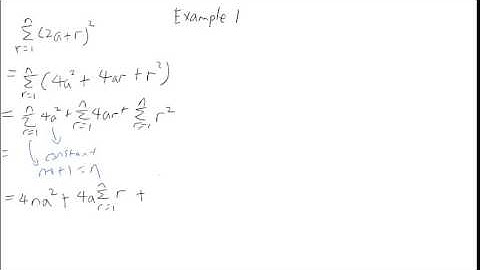 Example 1
\sum_{r=1}^{n} (2a+r)^2
= \sum_{r=1}^{n} (4a^2 + 4ar + r^2)
= \sum_{r=1}^{n} 4a^2 + \sum_{r=1}^{n} 4ar + \sum_{r=1}^{n} r^2
= constant
n-1+1=n
= 4na^2 + 4a \sum_{r=1}^{n} r +